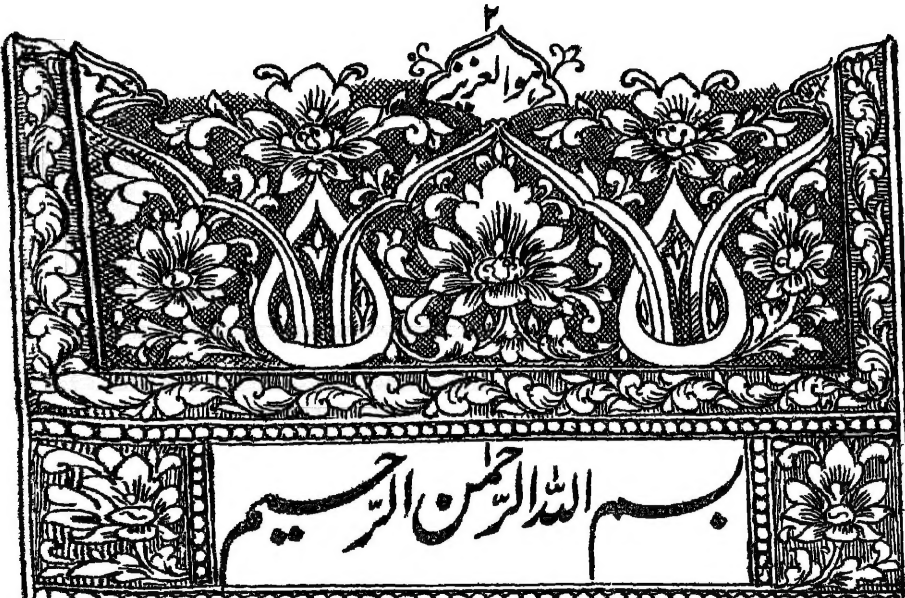 ٢
هو العزيز
بسم الله الرحمٰن الرَّحيم